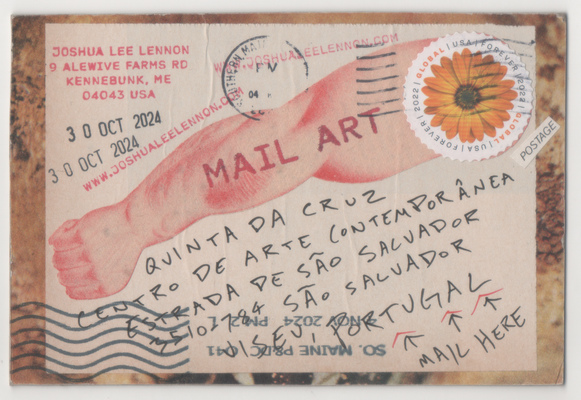 JOSHUA LEE LENNON
9 ALEWIVE FARMS RD
KENNEBUNK, ME
04043 USA
30 OCT 2024
30 OCT 2024
WWW.JOSHUALEELENNON.COM
WWW.JOSHUALEELENNON.COM
SOUTHERN
PM
04
GLOBAL | USA | FOREVER | 2022 | GLOBAL | USA | FOREVER | 2022 |
POSTAGE
MAIL ART
QUINTA DA CRUZ
CENTRO DE ARTE CONTEMPORÂNEA
ESTRADA DE SÃO SALVADOR
SÃO SALVADOR
VISEU, PORTUGAL
MAIL HERE
SO. MAINE P&DC 041
NOV 2024 PM 2 L